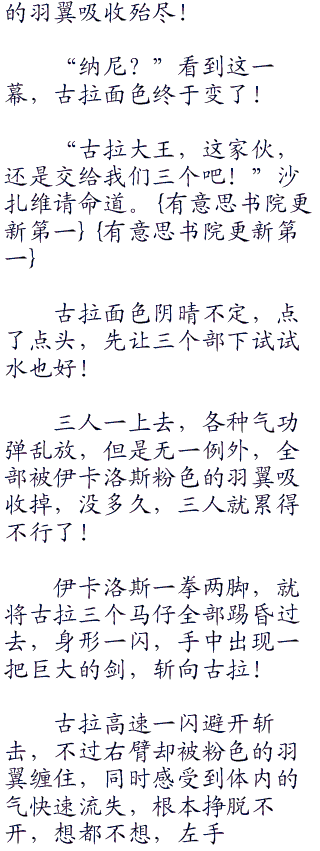 的羽翼吸收殆尽！
“纳尼？”看到这一
幕，古拉面色终于变了！
“古拉大王，这家伙，
还是交给我们三个吧！”沙
扎维请命道。{有意思书院更
新第一}{有意思书院更新第
一}
古拉面色阴晴不定，点
了点头，先让三个部下试试
水也好！
三人一上去，各种气功
弹乱放，但是无一例外，全
部被伊卡洛斯粉色的羽翼吸
收掉，没多久，三人就累得
不行了！
伊卡洛斯一拳两脚，就
将古拉三个马仔全部踢昏过
去，身形一闪，手中出现一
把巨大的剑，斩向古拉！
古拉高速一闪避开斩
击，不过右臂却被粉色的羽
翼缠住，同时感受到体内的
气快速流失，根本挣脱不
开，想都不想，左手